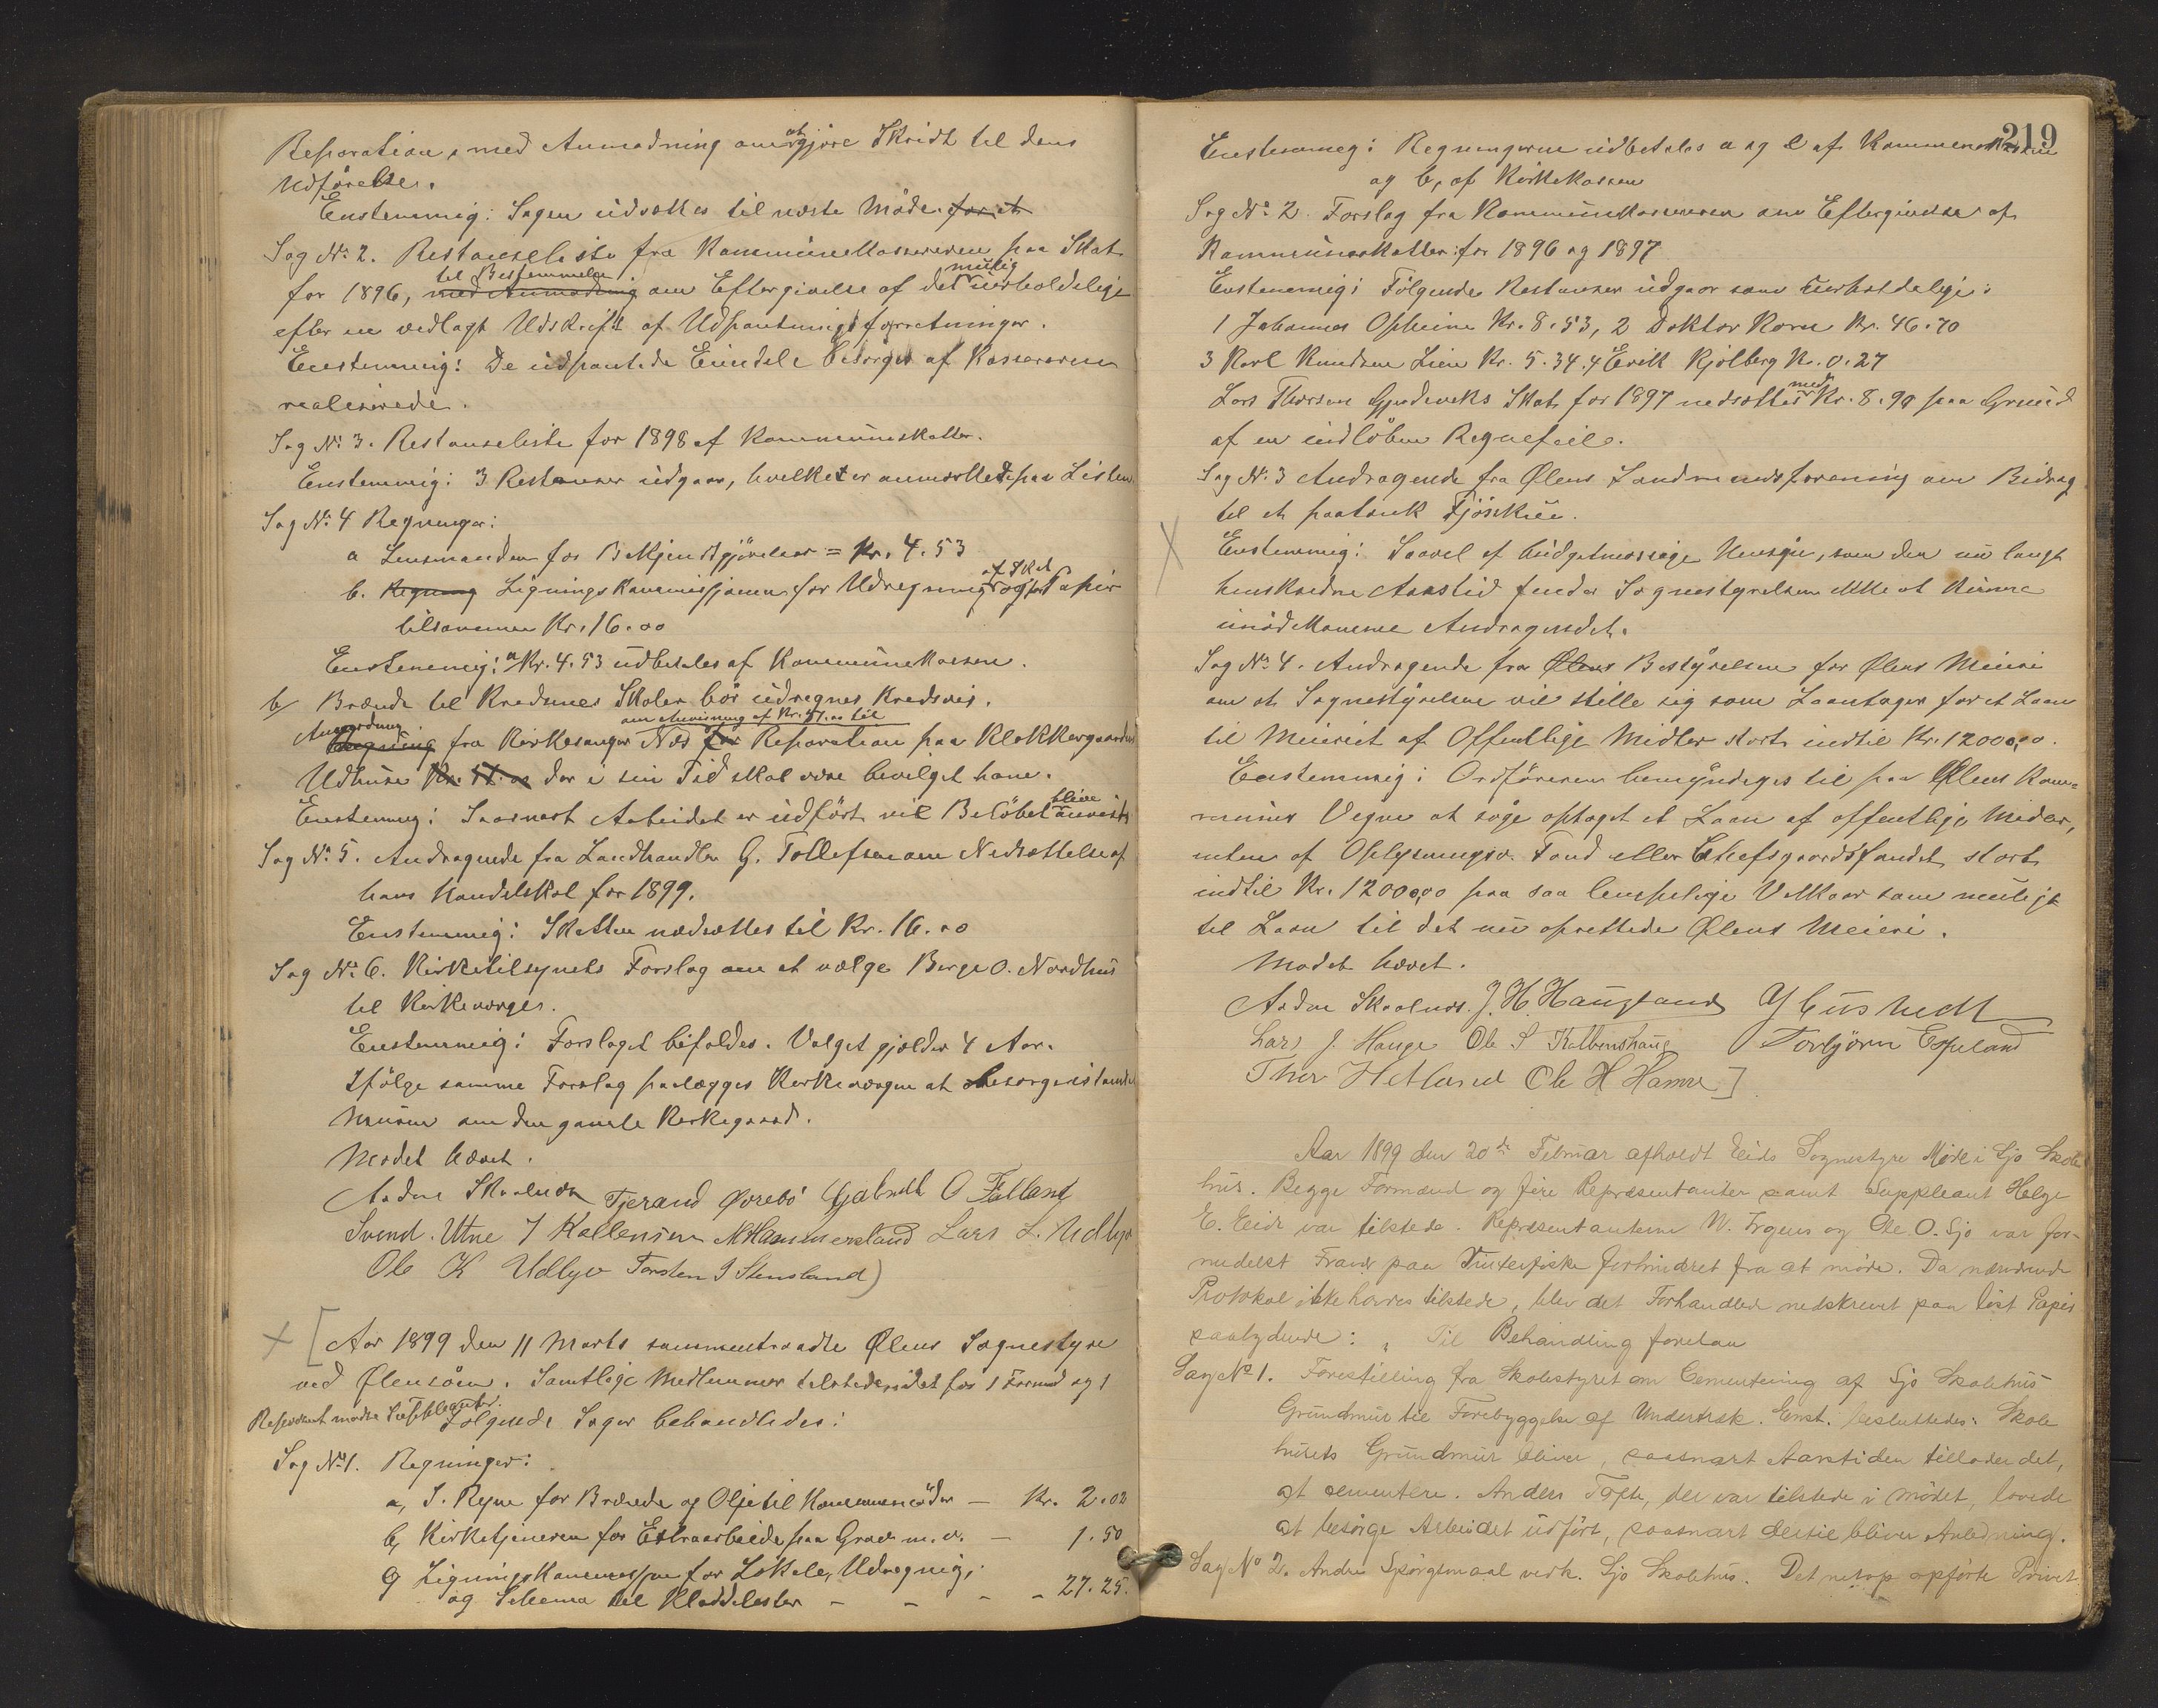 Reparation, med Anmodning om at gjøre Skridt til dens
Udførelse.
Enstemmig: Sagen udsættes til næste Møde. for at
Sag No 2. Restanseliste fra Kommunekassereren paa Skat
for 1896, med Anmodning til Bestemmelse om Eftergivelse af det mulig uerholdelige
efter en vedlagt Udskrift af Udpantningsforretninger.
Enstemmig: De udpantede Eiendele besørges af Kassereren
realiserede.
Sag No 3. Restanseliste for 1898 af Kommuneskatter.
Enstemmig: 3 Restanser udgaar, hvilket er anmærket paa Listen.
Sag No 4 Regninger:
a Lensmanden for Bekjendtgjørelser = Kr. 4.53
b. Regning Ligningskommissjonen for Udregning af Skat og for Papir
tilsammen Kr. 16.00
Enstemmig: a Kr. 4.53 udbetales af Kommunekassen.
b/ Brænde til Kredsenes Skoler bør udregnes Kredsvis.
Regning fra Kirkesanger Næs for om Anvisning af Kr. til Reparation paa Klokkergaardens
Udhuse Kr. der i sin Tid skal være bevilget ham.
Enstemmig: Saasnart Arbeidet er udført vil Beløbet blive anvist
Sag No 5. Andragende fra Landhandler G. Tollefsen om Nedsættelse af
hans Handelskat for 1899.
Enstemmig: Skatten nedsættes til Kr. 16.00
Sag No 6. Kirketilsynets Forslag om at vælge Berge O. Nordhus
til Kirkeværge.
Enstemmig: Forslaget bifaldes. Valget gjælder 4 Aar.
Ifølge samme Forslag paalægges Kirkeværgen at besørge istand
Muren om den gamle Kirkegaard.
Mødet hævet.
Aadne Skaalnes Tjerand Ørebø Gabriel O Fatland
Svend. Utne J Kallensen M Hammersland Lars L. Udbye
Ole K Udbye Torsten J Stensland)
[Aar 1899 den 11 Marts sammentraadte Ølens Sognestyre
ved Ølensøen. Samtlige Medlemmer tilstede, idet for 1 Formd og 1
Repræsent mødte Suppleanter. Følgende Sager behandledes:
Sag No 1. Regninger:
a, S. Ryne for Brænde og Olje til Kommunemøder — Kr. 2.02
b, Kirketjeneren for Extraarbeide paa Grave m. v. — 1.50
c, Ligningskommissjon for Lokale, Udregning,
og Schema til Kladdelister – – – – 27.25.
219
Enstemmig: Regningerne udbetales a og c af Kommunekassen
og b, af Kirkekassen
Sag No 2. Forslag fra Kommunekassereren om Eftergivelse af
Kommuneskatter for 1896 og 1897
Enstemmig: Følgende Restanser udgaar som uerholdelige:
1 Johannes Opheim Kr. 8.53, 2 Doktor Korn Kr. 46.70
3 Karl Knudsen Lien Kr. 5.34. 4 Erik Kjølberg Kr. 0.27
Lars Thorsen Gjerdeviks Skat for 1897 nedsættes med Kr. 8.90 paa Grund
af en indløben Regnefeil.
Sag No 3 Andragende fra Ølens Landmandsforening om Bidrag
til et paatænkt Fjøskue.
Enstemmig: Saavel af budgetmæssige Hensyn, som den nu langt
henskredne Aarstid finder Sognestyrelsen ikke at kunne
imødekomme Andragendet.
Sag No 4. Andragende fra Ølens Bestyrelsen for Ølens Meieri
om at Sognestyrelsen vil stille sig som Laantager for et Laan
til Meieriet af Offentlige Midler stort indtil Kr. 12000,00.
Enstemmig: Ordføreren bemyndiges til paa Ølens Kom-
munes Vegne at søge optaget et Laan af offentlige Midler,
enten af Oplysningsv. Fond eller Chefsgaardsfondet, stort
indtil Kr. 12000,00 paa saa lempelige Vilkaar som muligt
til Laan til det nu oprettede Ølens Meieri.
Mødet hævet.
Aadne Skaalnes. J. H. Haugland
Lars J. Hauge Ole S Kalbenshaug Torbjørn Espeland
Thor Hetland Ole H Hamre]
Aar 1899 den 20de Februar afholdt Eids Sognestyre Møde i Sjo Skole
hus. Begge Formænd og fire Repræsentanter samt Suppleant Helge
E. Eide var tilstede. Repræsentanterne W. Irgens og Ole O. Sjo var for-
medelst Fravær paa Vinterfiske forhindret fra at møde. Da nærværende
Protokol ikke havdes tilstede, blev det Forhandlede nedskrevet paa løst Papir
saalydende: „Til Behandling foretoes
Sag No 1. Forestilling fra Skolestyret om Cementering af Sjo Skolehus
Grundmur til Forebyggelse af Undertræk. Enst. besluttedes: Skole
husets Grundmur bliver, saasnart Aarstiden tillader det,
at cementere. Anders Tofte, der var tilstede i mødet, lovede
at besørge Arbeidet udført, saasnart dertil bliver Anledning.
Sag No 2. Andre Spørgsmaal vedk. Sjo Skolehus. Det netop opførte Privet